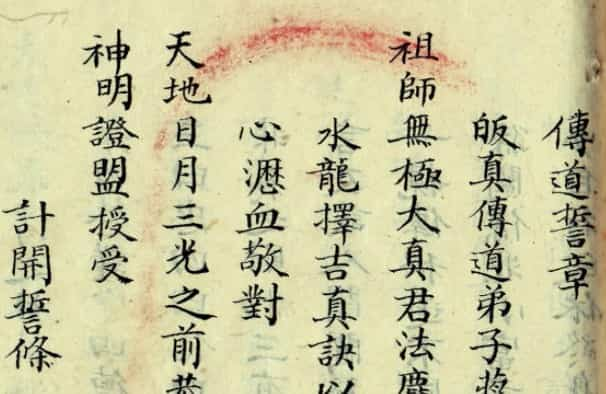 傳道誓章
皈真傳道弟子蔣
祖師無極大真君法
水龍擇吉真訣以
心瀝血敬對
天地日月三光之前
神明證盟授受
計開誓條